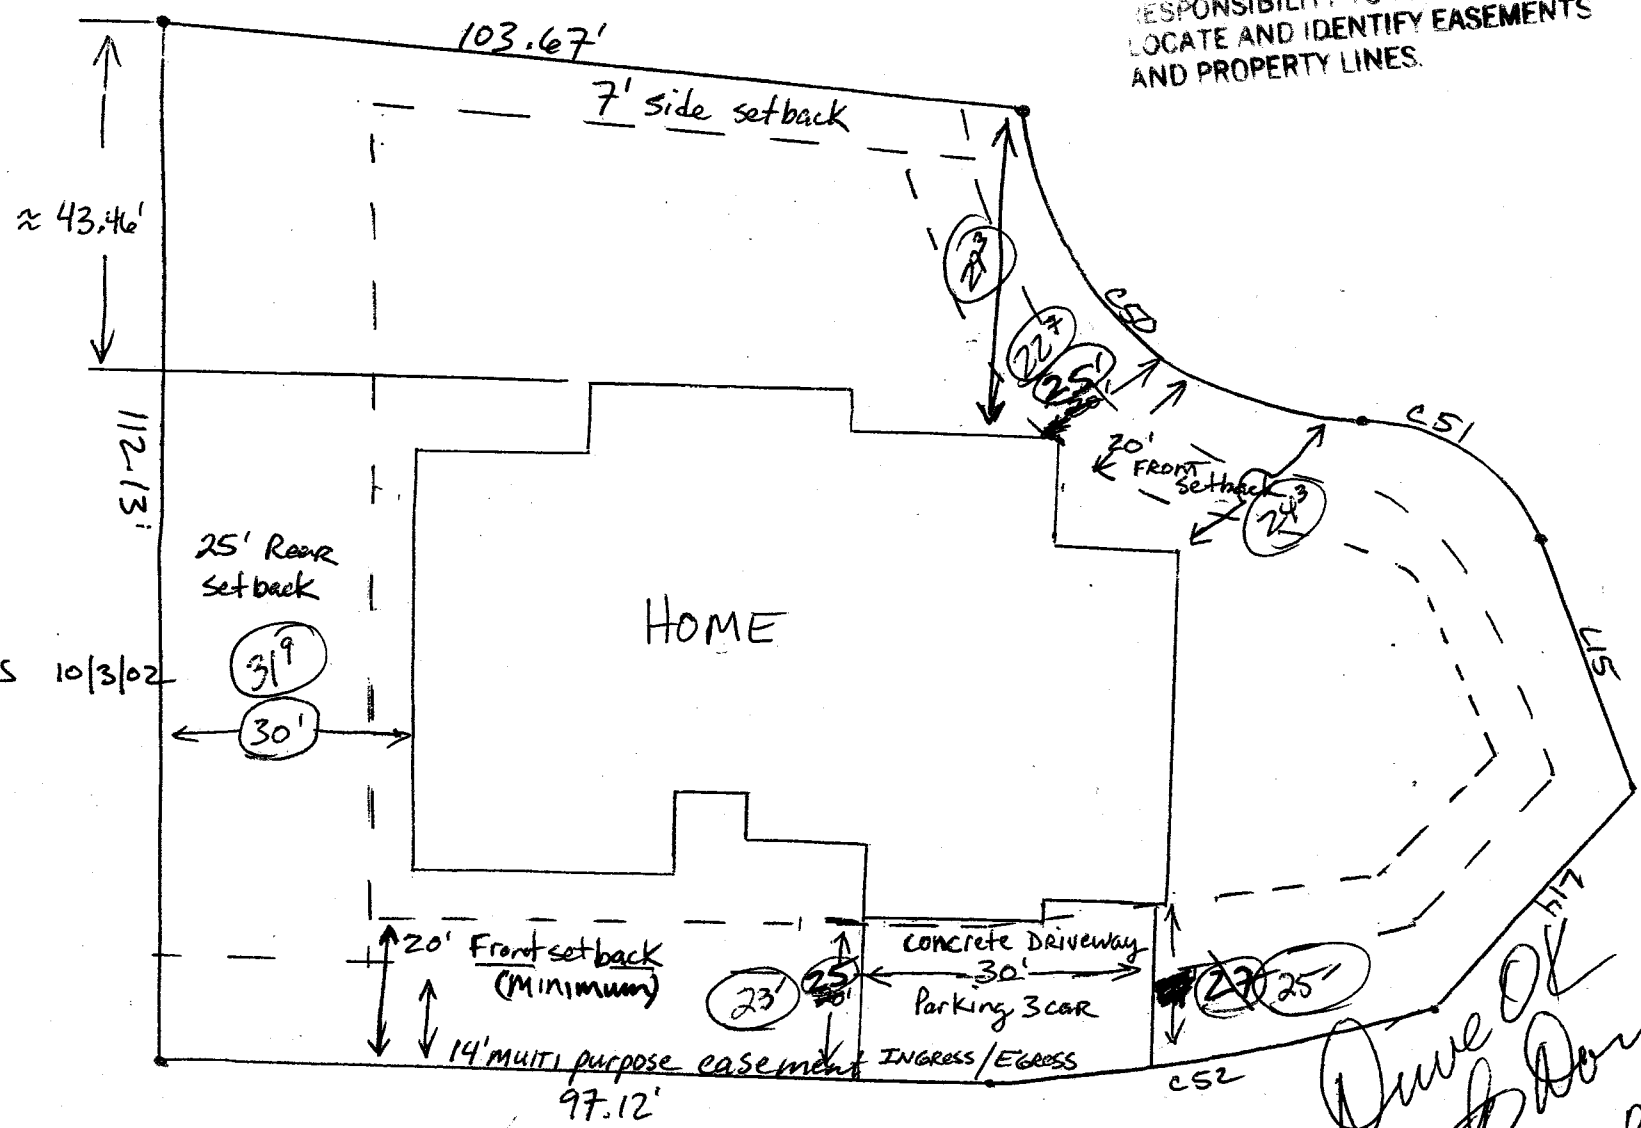 LOCATE AND IDENTIFY EASEMENTS
AND PROPERTY LINES.
103.67'
7' side setback
≈ 43.46'
22⁷
25'
C50
C51
20'
FRONT
setback
24³
112.13'
25' Rear
setback
31⁹
30'
10/3/02
HOME
L15
L14
20' Front setback
(Minimum)
23'
25
concrete Driveway
30'
Parking 3 car
27
25'
14' multi purpose easement INGRESS/EGRESS
97.12'
C52
Dave OK